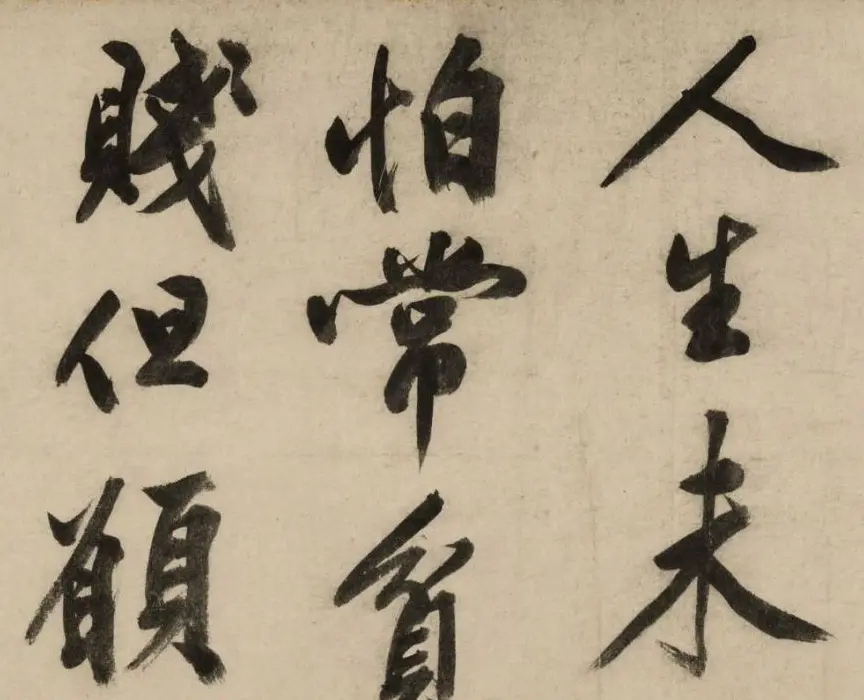 人生未
怕常貧
賤但願